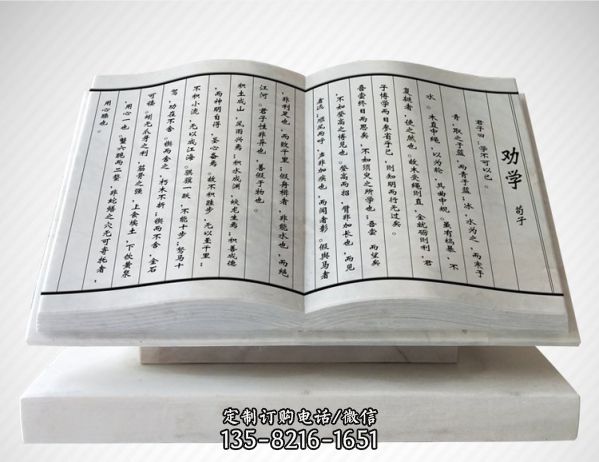 劝学
荀子
君子曰：学不可以已。
青，取之于蓝，而青于蓝；冰，水为之，而寒于
水。木直中绳，以为轮，其曲中规。虽有槁暴，不
复挺者，使之然也。故木受绳则直，金就砺则利，君
子博学而日参省乎己，则知明而行无过矣。
吾尝终日而思矣，不如须臾之所学也；吾尝 而望矣
，不如登高之博见也。登高而招，臂非加长也，而见
者远；顺风而呼，声非加疾也，而闻者彰。假舆马者
，非利足也，而致千里；假舟楫者，非能水也，而绝
江河。君子性非异也，善假于物也。
积土成山，风雨兴焉；积水成渊，蛟龙生焉；积善成德
，而神明自得，圣心备焉。故不积跬步，无以至千里；
不积小流，无以成江海。骐骥一跃，不能十步；驽马十
驾，功在不舍。锲而舍之，朽木不折；锲而不舍，金石
可镂。蚓无爪牙之利，筋骨之强，上食埃土，下饮黄泉
，用心一也。蟹六跪而二螯，非蛇鳝之穴无可寄托者，
用心躁也。
定制订购电话/微信
135-8216-1651